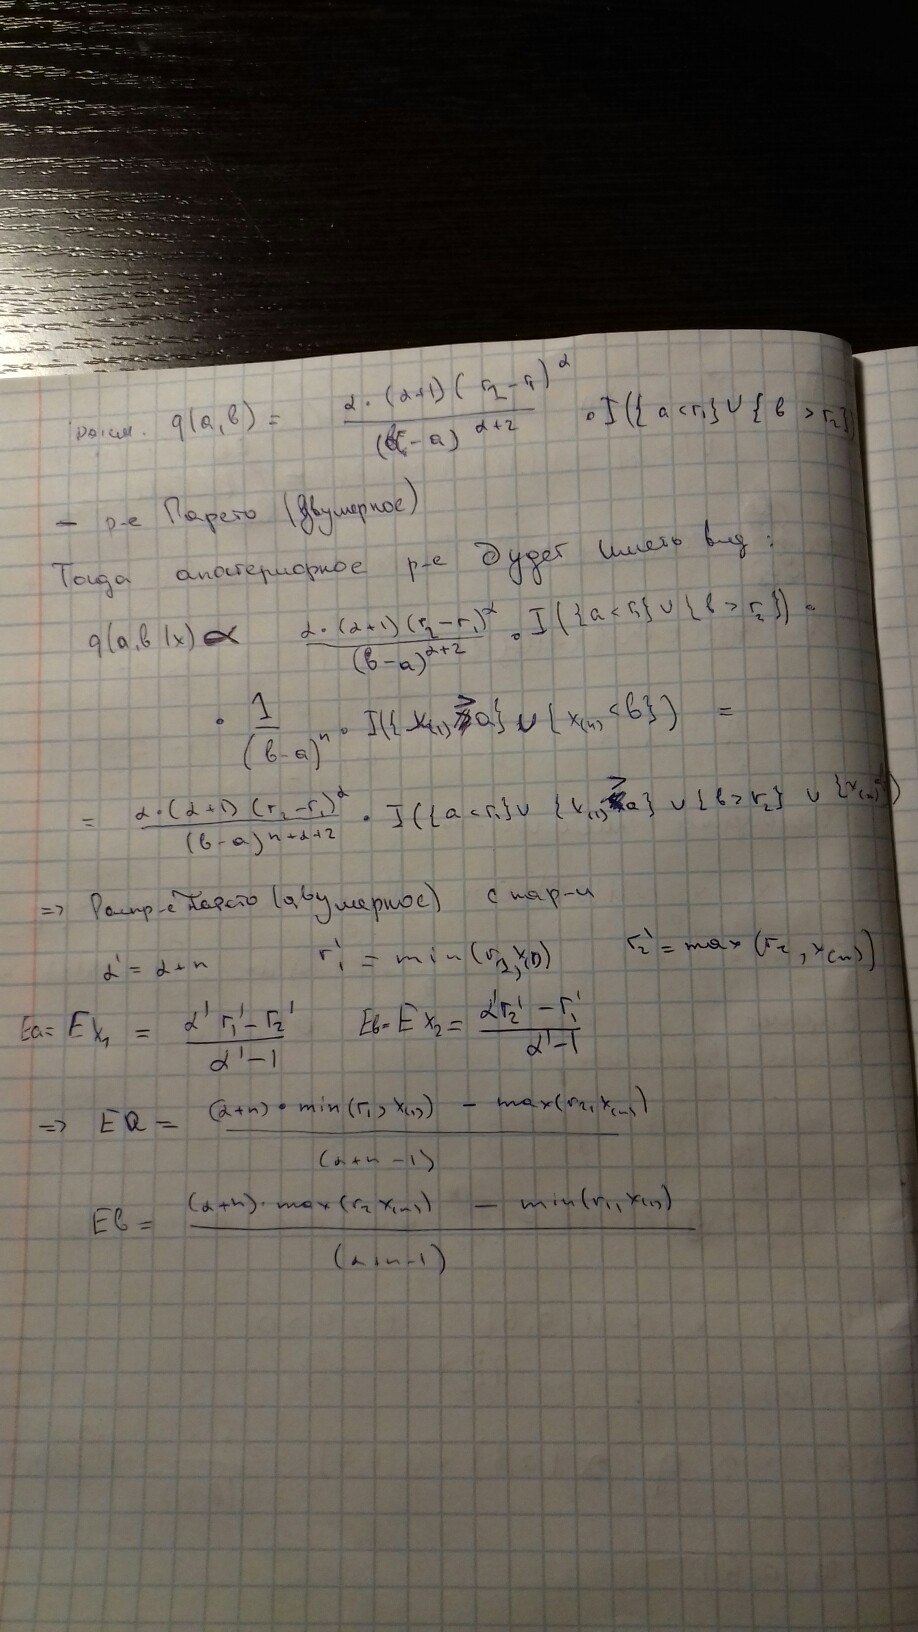 q(a,b) = α·(α+1)(r₂-r₁)^α / (b-a)^{α+2} · I({a<r₁}∪{b>r₂})
— р-е Парето (двумерное)
Тогда апостериорное р-е будет иметь вид:
q(a,b|x) ∝ α·(α+1)(r₂-r₁)^α / (b-a)^{α+2} · I({a<r₁}∪{b>r₂}) ·
· 1/(b-a)^n · I({x₍₁₎≥a}∪{x₍ₙ₎<b}) =
= α·(α+1)(r₂-r₁)^α / (b-a)^{n+α+2} · I({a<r₁}∪{x₍₁₎≥a}∪{b>r₂}∪{x₍ₙ₎
=> Распр-е Парето (двумерное) с пар-и
α' = α+n r₁' = min(r₁,x₍₁₎) r₂' = max(r₂,x₍ₙ₎)
Ea = Ex₁ = (α'r₁'-r₂')/(α'-1) Eb = Ex₂ = (α'r₂'-r₁')/(α'-1)
=> Ea = ((α+n)·min(r₁,x₍₁₎) - max(r₂,x₍ₙ₎))/(α+n-1)
Eb = ((α+n)·max(r₂ x₍ₙ₎) - min(r₁,x₍₁₎))/(α+n-1)